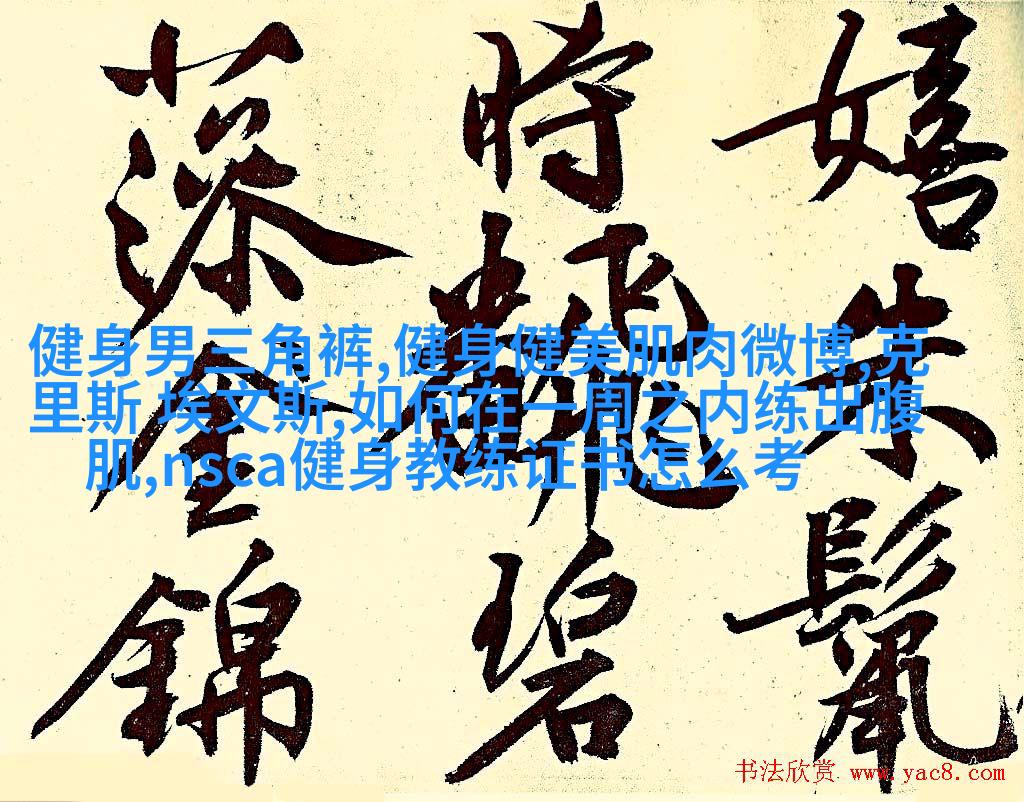 嬉朱鬣
時飜碧
藻金錦
健身男三角裤,健身健美肌肉微博,克
里斯 埃文斯,如何在一周之内练出腹
肌,nsca健身教练证书怎么考
书法欣赏 www.yac8.com